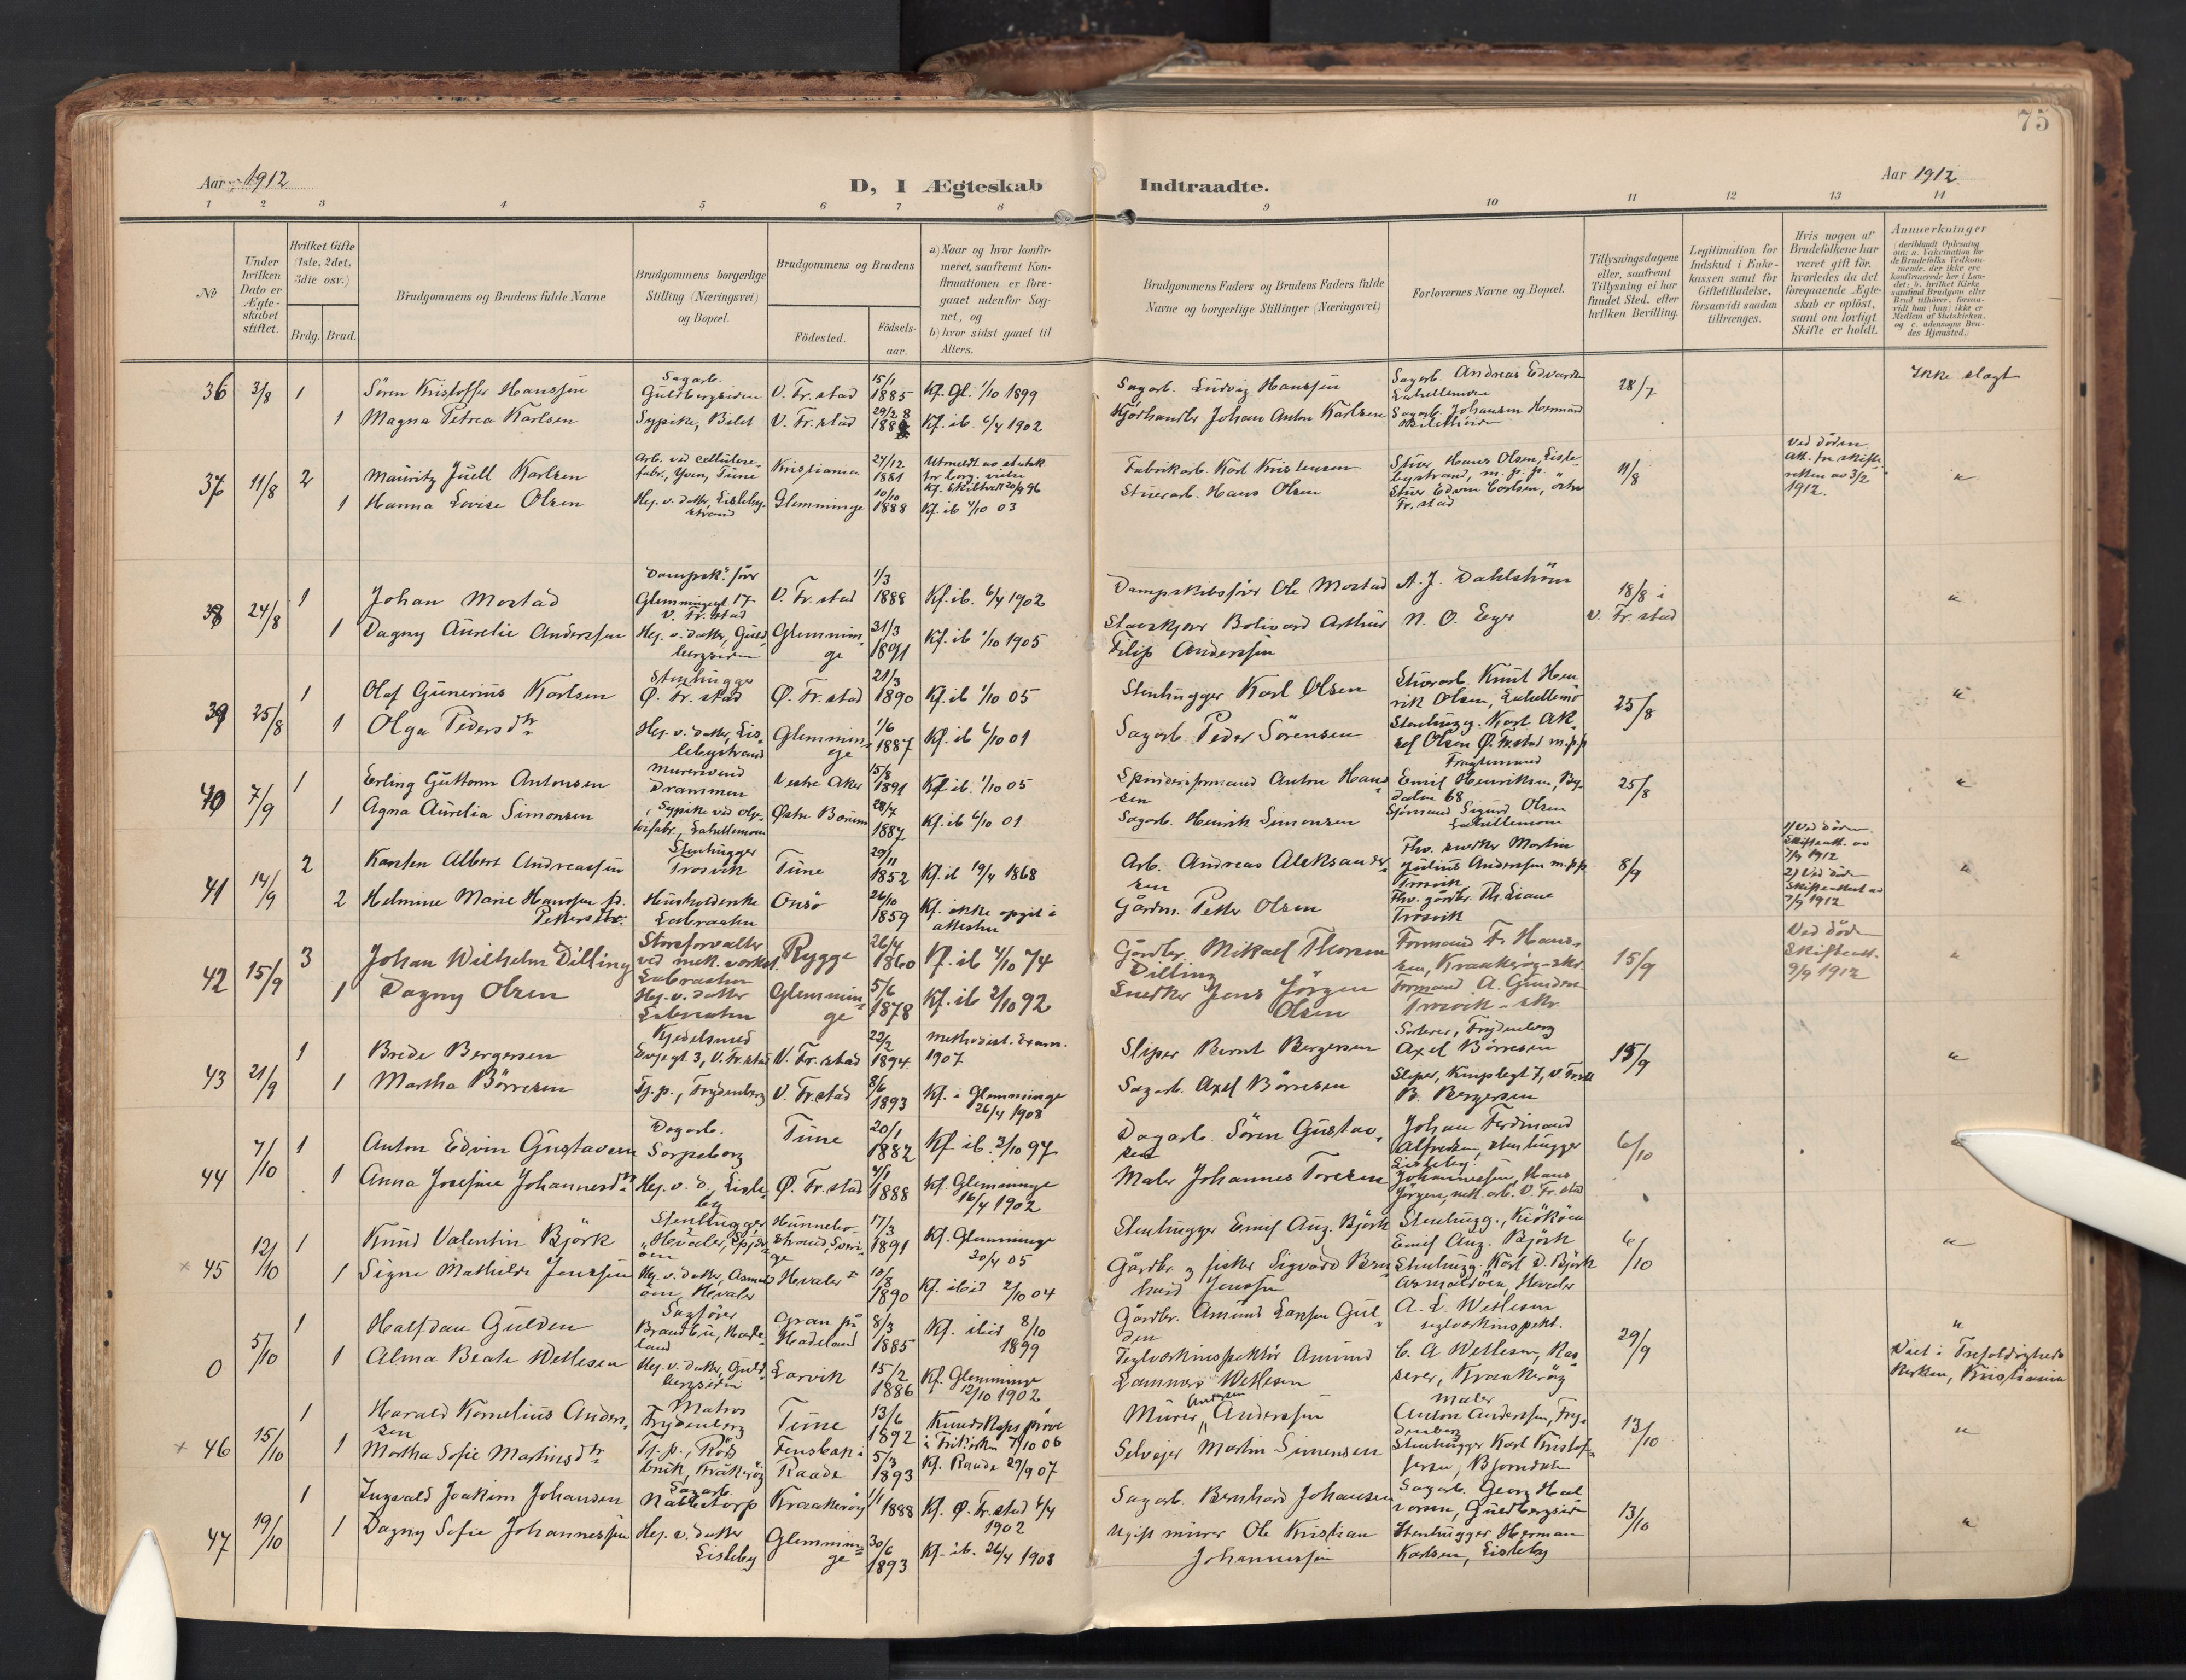 75
Aar 1912
D, I Ægteskab Indtraadte.
Aar 1912
1 2 3 4 5 6 7 8 9 10 11 12 13 14
No
Under hvilken Dato er Ægteskabet stiftet.
Hvilket Gifte (1ste, 2det, 3die osv.)
Brdg. Brud.
Brudgommens og Brudens fulde Navne
Brudgommens borgerlige Stilling (Næringsvei) og Bopæl.
Brudgommens og Brudens
Födested.
Födselsaar.
a) Naar og hvor konfirmeret, saafremt Konfirmationen er foregaaet udenfor Sognet, og
b) hvor sidst gaaet til Alters.
Brudgommens Faders og Brudens Faders fulde Navne og borgerlige Stillinger (Næringsvei)
Forlovernes Navne og Bopæl.
Tillysningsdagene eller, saafremt Tillysning ei har fundet Sted, efter hvilken Bevilling.
Legitimation for Indskud i Enkekassen samt for Giftetilladelse, forsaavidt saadan tiltrænges.
Hvis nogen af Brudefolkene har været gift før, hvorledes da det foregaaende Ægteskab er oplöst, samt om lovligt Skifte er holdt.
Anmærkninger
36 3/8 1 Sören Kristoffer Hanssen Sagarb. Guldbergsiden V. Fr.stad 15/1 1885 Kf. Gl. 1/10 1899 Sagarb. Ludvig Hanssen Sagarb. Andreas 28/7 Ikke slagt
1 Magna Petrea Karlsen Sypike, Bilet V. Fr.stad 29/2 Kf. ib. 6/4 1902 Johan Anton Karlsen Sagarb. Johansen Herman
37 11/8 2 Mauritz Juell Karlsen Arb. ved cellulosefabr., Yven, Tune Kristiania 24/12 1881 Fabrikarb. Karl Kristensen Stuer Hans Olsen, Lislebystrand, m. p. p. 11/8 Ved döden Att. fra skifteretten av 3/2 1912. "
1 Hanna Lovise Olsen Hj. v. datter, Lislebystrand Glemminge 10/10 1888 Kf. ib 4/10 03 Stuerarb. Hans Olsen Stuer Edvin Carlsen, Fr.stad
38 24/8 1 Johan Mostad Dampsk.förer Glemmingegt 17 V. Fr.stad V. Fr.stad 1/3 1888 Kf. ib. 6/4 1902 Dampskibsförer Ole Mostad A. J. Dahlström 18/8 i V. Fr.stad "
1 Dagny Aurelie Anderssen Hj. v. datter, Guldbergsiden Glemminge 31/3 1891 Kf. ib 1/10 1905 Bolivard Arthur Filip Anderssen N. O. Eger
39 25/8 1 Olaf Gunerius Karlsen Stenhugger Ø. Fr.stad Ø. Fr.stad 21/3 1890 Kf. ib 1/10 05 Stenhugger Karl Olsen Stuerarb. Knut Henrik Olsen, 25/8 "
1 Olga Pedersdtr Hj. v. datter, Lislebystrand Glemminge 1/6 1887 Kf. ib 6/10 01 Sagarb. Peder Sörensen Stenhugg. Karl Aksel Olsen Ø. Fr.stad m.p.p
40 7/9 1 Erling Guttorm Antonsen Murersvend Drammen Vestre Aker 15/8 1891 Kf. ib. 1/10 05 Spinderiformand Anton Hansen Emil Henriksen, 68 25/8 "
1 Agna Aurelia Simonsen Sypike ved Østre Bærum 28/7 1887 Kf. ib 6/10 01 Sagarb. Henrik Simonsen Sjömand Sigurd Olsen
41 14/9 2 Karsten Albert Andreassen Stenhugger Trosvik Tune 29/11 1852 Kf. ib 19/4 1868 Arb. Andreas Aleksandersen Fhv. snedker Martin Julius Andersen m.p.p Trosvik 8/9 1) Ved döden. Skifteatt. av 7/9 1912 "
2 Helmine Marie Hanssen f. Pettersdtr. Husholderske Labraaten Onsö 26/10 1859 Kf. ikke opgit i attesten Gårdm. Petter Olsen Fhv. gårdbr. Th. Liane Trosvik 2) Ved död Skifteattest av 7/9 1912
42 15/9 3 Johan Wilhelm Dilling Storeforvalter ved mek. verksted Labraaten Rygge 26/4 1860 Kf. ib 4/10 74 Gårdbr. Mikael Thorsen Dilling Formand Fr. Hansen, Kraakeröy 15/9 Ved död Skifteatt. 9/9 1912 "
1 Dagny Olsen Hj. v. datter Labraaten Glemminge 5/6 1878 Kf. ib 2/10 92 Snedker Jens Jörgen Olsen Formand A. Gundersen Trosvik
43 21/9 1 Brede Bergersen Kjedelsmed 3, V. Fr.stad V. Fr.stad 22/2 1894 Methodist. Exam. 1907 Sliper Bernt Bergersen Sorterer, Frydenberg Axel Börresen 15/9 "
1 Martha Börresen Tj. p., Frydenberg V. Fr.stad 8/6 1893 Kf. i Glemminge 26/4 1908 Sagarb. Axel Börresen Sliper, 7, V. Fr.stad B. Bergersen
44 7/10 1 Anton Edvin Gustavsen Dagarb. Sarpsborg Tune 20/1 1882 Kf. ib. 3/10 97 Dagarb. Sören Gustavsen Johan Ferdinand Alfredsen, stenhugger Lisleby. 6/10 "
1 Anna Josefine Johannesdtr Hj. v. d., Lisleby Ø. Fr.stad 4/1 1888 Kf. Glemminge 16/4 1902 Maler Johannes Toresen Johannessen, Hans Jörgen, mek. arb. V. Fr.stad
× 45 12/10 1 Knud Valentin Björk Stenhugger Hevaler, Hunnebostrand, Sverige 17/3 1891 Kf. Glemminge 30/4 05 Stenhugger Emil Aug. Björk Stenhugg., Kiököen Emil Aug. Björk 6/10 "
1 Signe Mathilde Jenssen Hj. v. datter, Asmalöen, Hevaler Hevaler 10/8 1890 Kf. ibid 2/10 04 Gårdbr. og fisker Sigvard Bernhard Jenssen Stenhugg. Karl D. Björk Asmalöen, Hevaler
0 5/10 1 Halfdan Gulden Sagförer Brandbu, Hadeland Gran på Hadeland 8/3 1885 Kf. ibid 8/10 1899 Gårdbr. Amund Larssen Gulden A. L. Wetlesen teglverkinspekt. 29/9 "
1 Alma Beate Wetlesen Hj. v. datter, Guldbergsiden Larvik 15/2 1886 Kf. Glemminge 12/10 1902 Teglverkinspektör Amund Lammers Wetlesen C. A Wetlesen, Kasserer, Kraakeröy Viet i Trefoldigheds Kirken, Kristiania
× 46 15/10 1 Harald Kornelius Andersen Matros Frydenberg Tune 13/6 1892 Kundskapspröve i Frikirken 7/10 06 Murer Anderssen Maler Anton Anderssen, Frydenberg 13/10 "
1 Martha Sofie Martinsdtr Tj. p., Rödsbrik, Kråkeröy Raade 5/3 1893 Kf. Raade 29/9 07 Selveier Martin Simensen Stenhugger Karl Kristoffersen, Bjorndalen
47 19/10 1 Ingvald Joakim Johansen Sagarb. Nabbetorp Kraakeröy 1/1 1888 Kf. Ø. Fr.stad 6/4 1902 Sagarb. Bernhard Johansen Sagarb. Georg Halvorsen, Guldbergsiden 13/10 "
1 Dagny Sofie Johannessen Hj. v. datter Lisleby Glemminge 30/6 1893 Kf. ib. 26/4 1908 Ugift murer Ole Kristian Johannessen Stenhugger Herman Karlsen, Lisleby